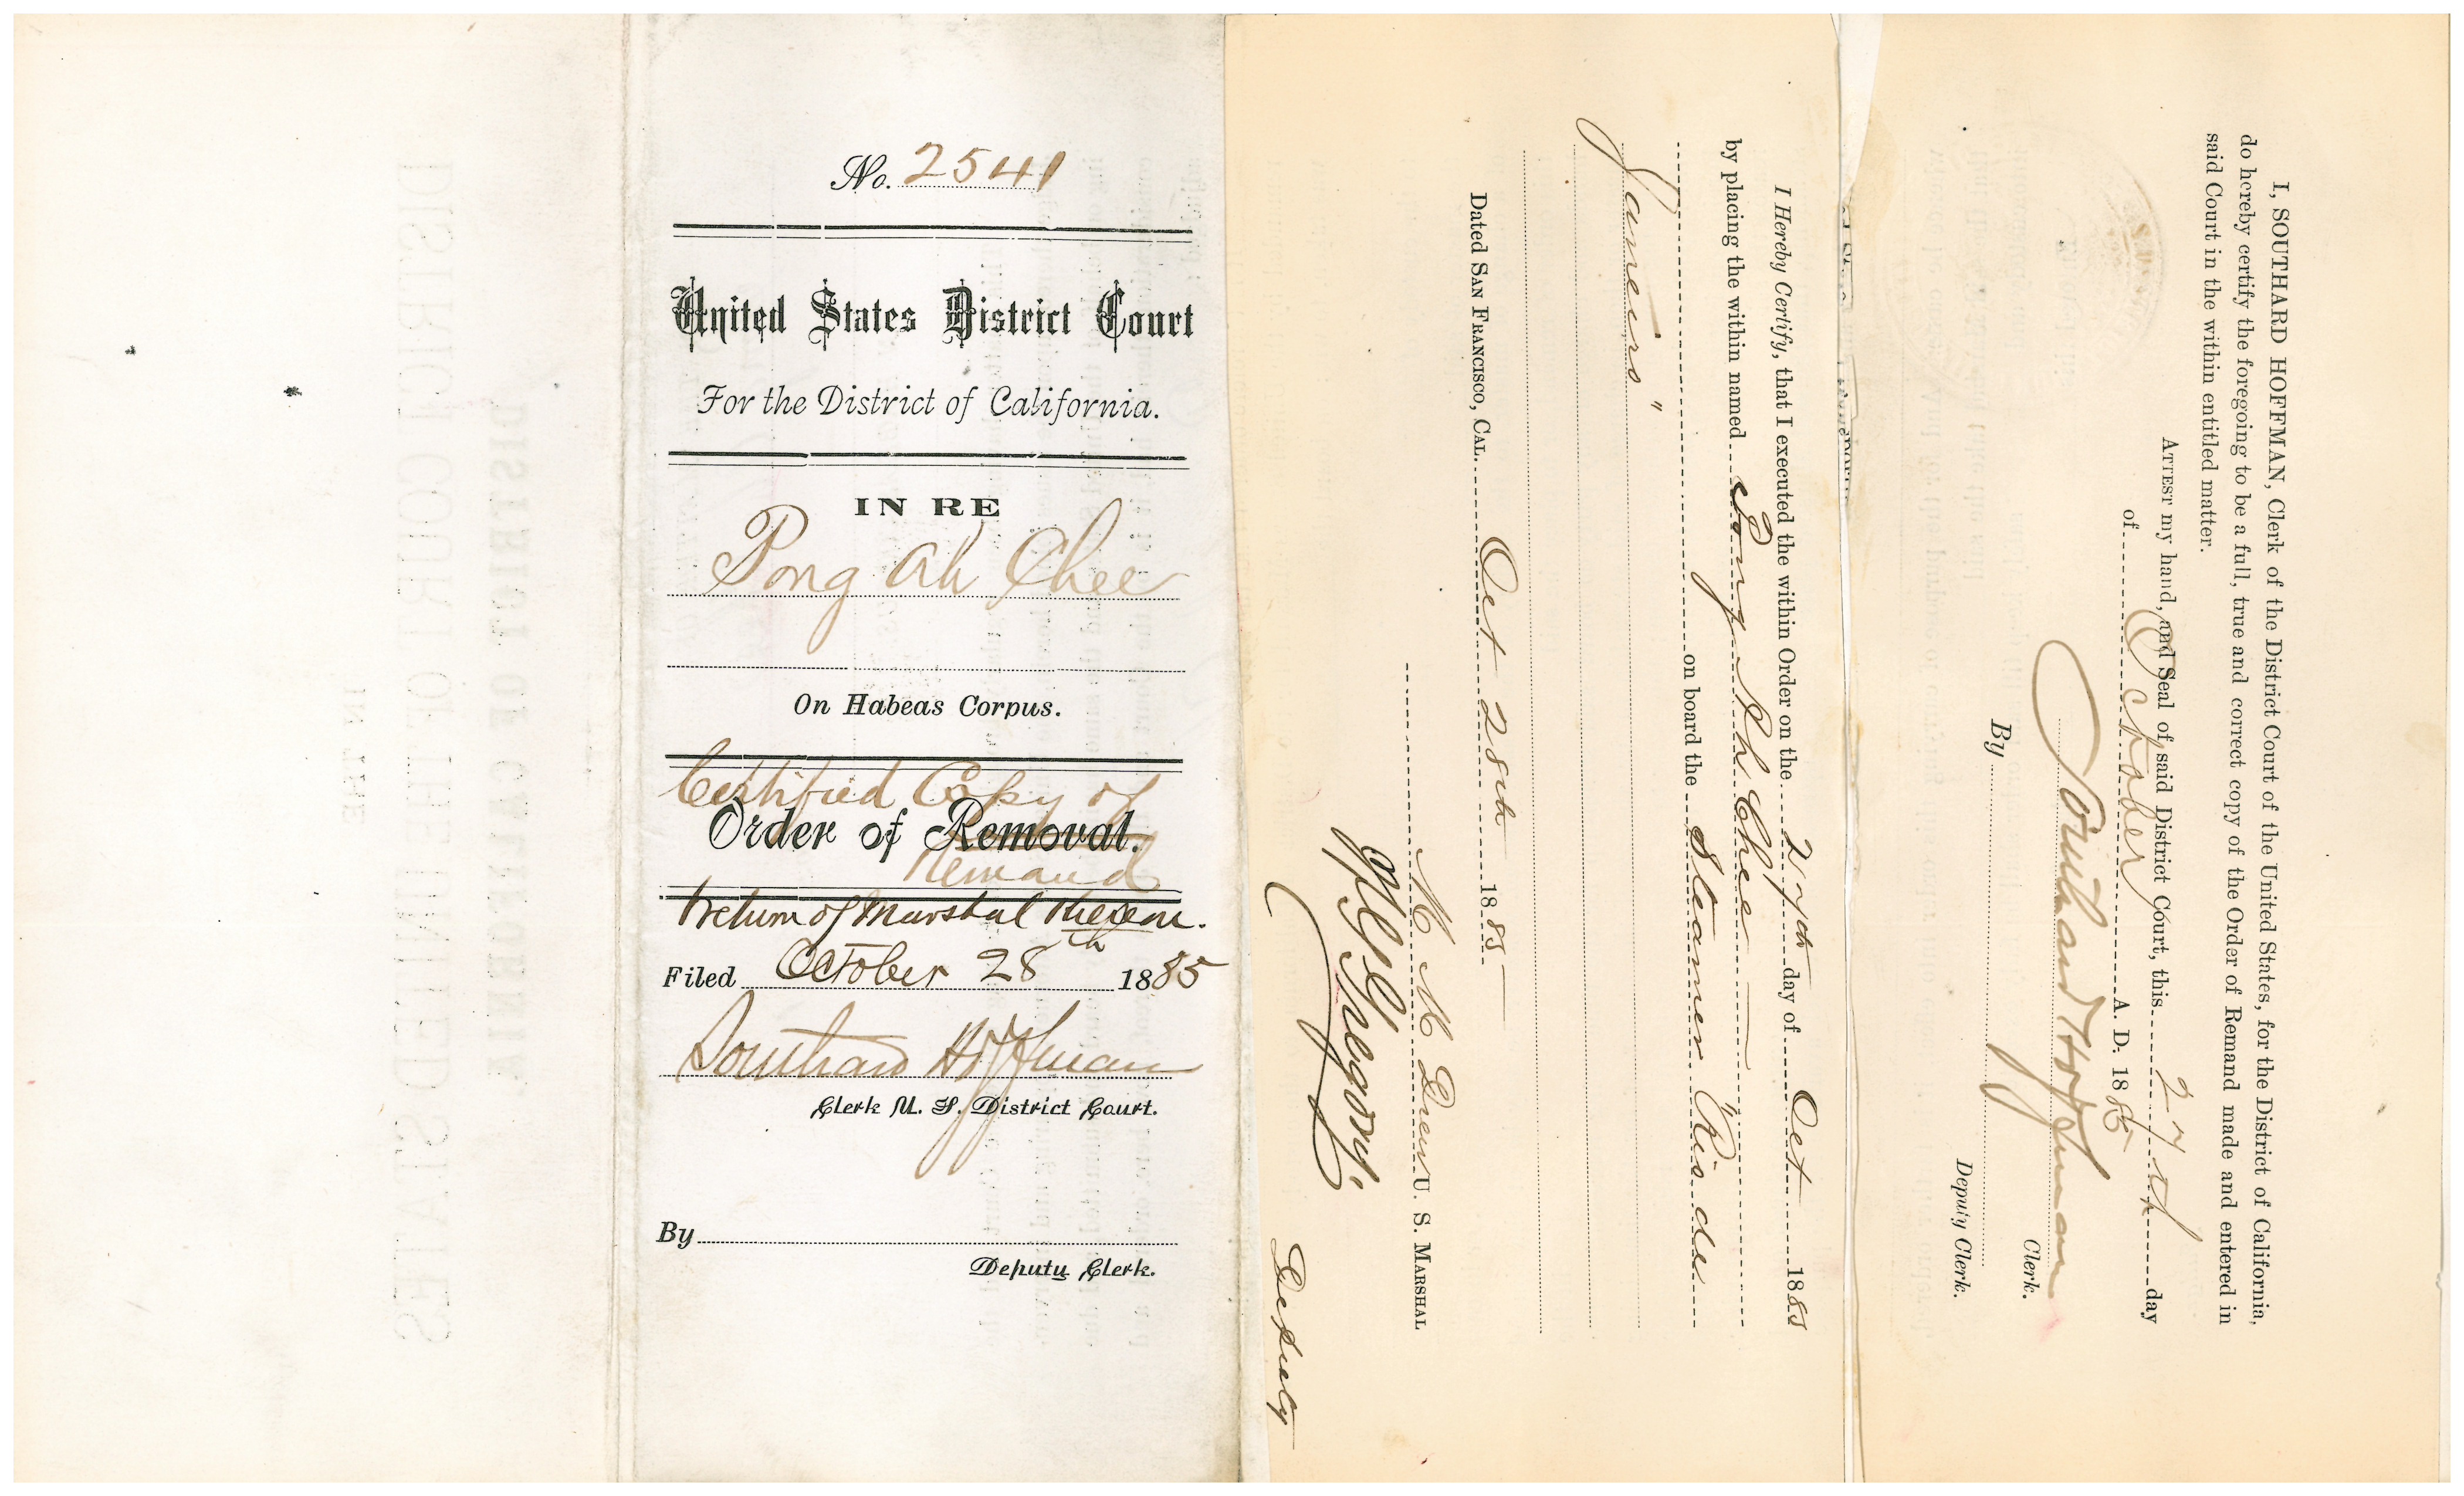 No. 2541
United States District Court
For the District of California.
IN RE
Pong Ah Chee
On Habeas Corpus.
Certified Copy of
Order of Removal.
Remand
& return of Marshal thereon.
Filed October 28th 1885
Southard Hoffman
Clerk U. S. District Court.
By
Deputy Clerk.
I Hereby Certify, that I executed the within Order on the 27th day of Oct 1885
by placing the within named Pong Ah Chee
on board the Steamer "Rio de
Janeiro"
Dated SAN FRANCISCO, CAL. Oct 28th 1885
M M Drew U. S. MARSHAL
Gregory.
Deputy
I, SOUTHARD HOFFMAN, Clerk of the District Court of the United States, for the District of California,
do hereby certify the foregoing to be a full, true and correct copy of the Order of Remand made and entered in
said Court in the within entitled matter.
ATTEST my hand, and Seal of said District Court, this 27th day
of October A. D. 1885
Southard Hoffman
Clerk.
By
Deputy Clerk.